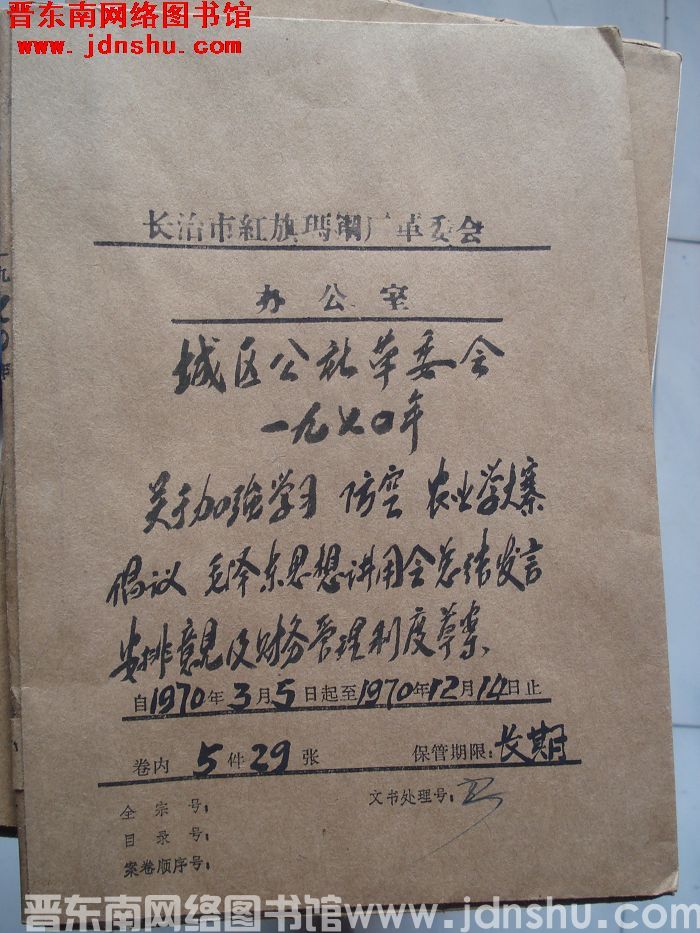 晋东南网络图书馆
www.jdnshu.com
长治市紅旗瑪钢厂革委会
办公室
城区公社革委会
一九七〇年
关于加強学习 防空 农业学大寨
倡议 毛泽东思想讲用会总结发言
安排意见及财务管理制度草案、
自1970年3月5日起至1970年12月14日止
卷内 5件29张 保管期限:长期
全宗号: 文书处理号:
目录号:
案卷顺序号:
晋东南网络图书馆 www.jdnshu.com